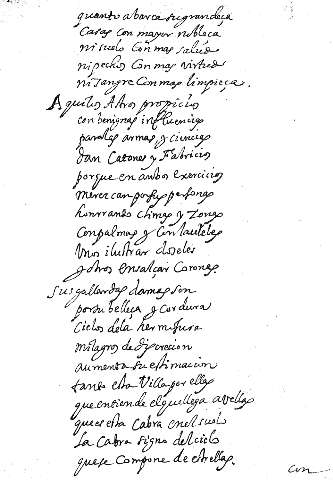 quanto abarca su grandeça
Casas con mayor nobleça
ni suelo con mas salud
ni pechos con mas virtud
ni sangre con mas limpieça.
Aquilos Astros propicios
con benignas influencias
para las armas, y ciencias
dan Catones y Fabricios
porque en ambos exercicios
merezcan por sus personas
honrrando climas y Zonas
con palmas y con laureles
Unos ilustrar doseles
y otros ensalçar Coronas.
Sus gallardas damas son
por su belleça y cordura
Cielos de la hermosura
milagros de discrecion
aumenta su estimacion
tanto esta Villa por ellas
que entiende el que llega a vellas
que es esta Cabra en el suelo
la Cabra signo del cielo
que se Compone de estrellas.
con